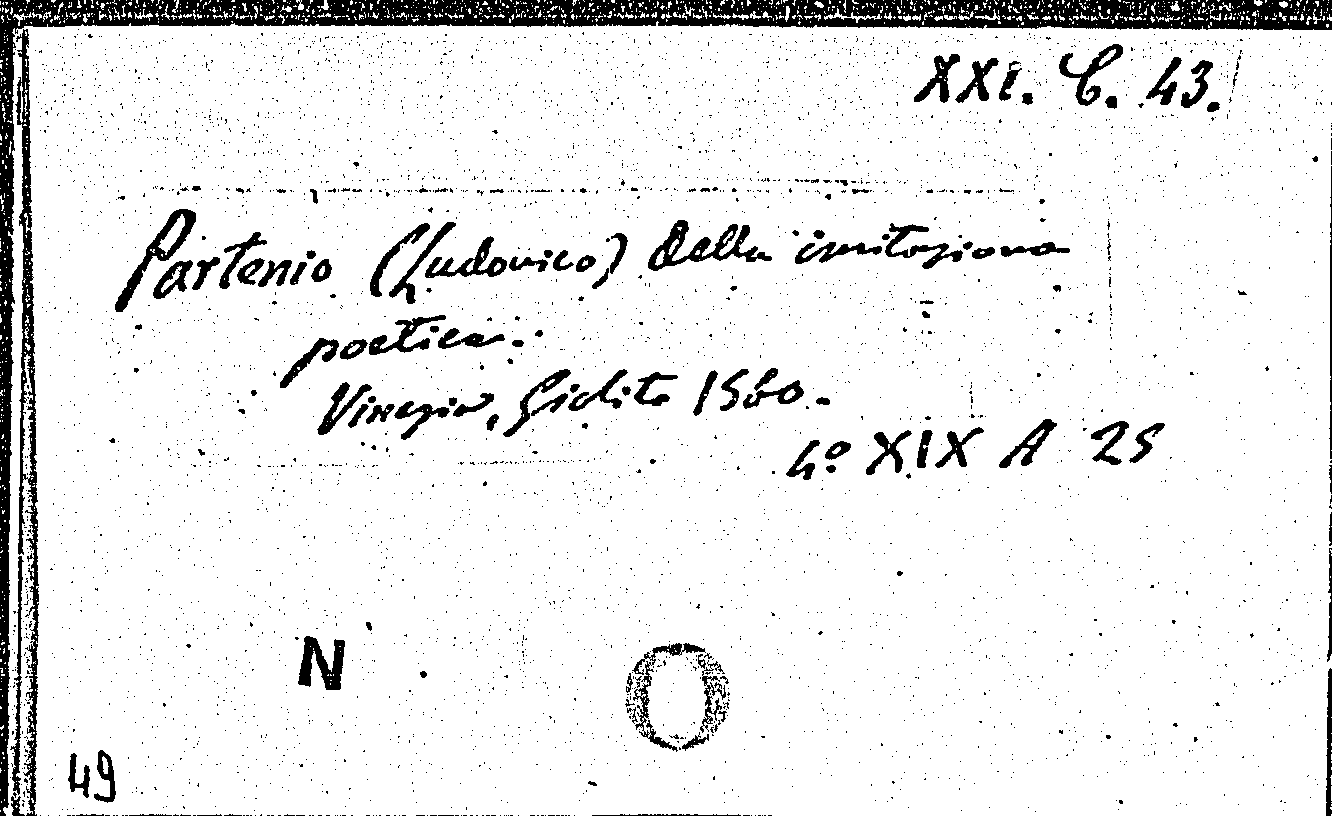 XXI. C. 43.
Partenio (Ludovico) Della imitazione
poetica.
Vinegia, Giolito 1560.
4º XIX A 25
N
O
49